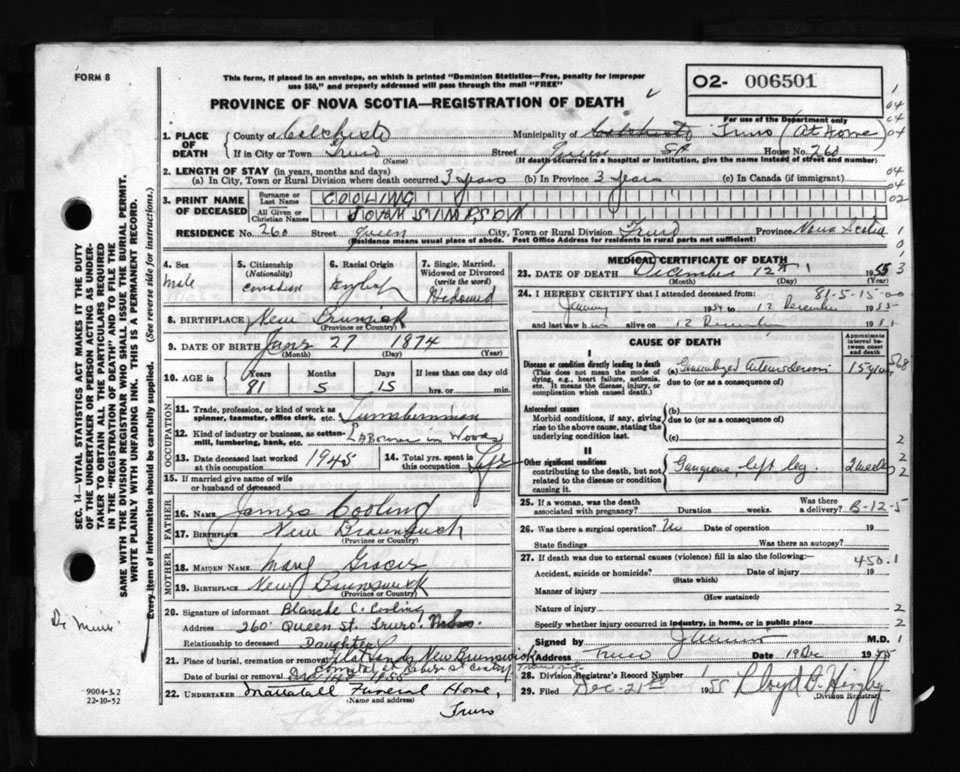 FORM 8
This form, if placed in an envelope, on which is printed "Dominion Statistics—Free, penalty for improper
use $50," and properly addressed will pass through the mail "FREE"
02- 006501
For use of the Department only
PROVINCE OF NOVA SCOTIA—REGISTRATION OF DEATH
1. PLACE OF DEATH
County of Colchester Municipality of Truro (At Home)
If in City or Town Truro Street Queen St House No. 260
(Name) (If death occurred in a hospital or institution, give the name instead of street and number)
2. LENGTH OF STAY (in years, months and days)
(a) In City, Town or Rural Division where death occurred 3 years (b) In Province 3 years (c) In Canada (if immigrant)
3. PRINT NAME OF DECEASED
Surname or Last Name COOLING
All Given or Christian Names JOHN SIMPSON
RESIDENCE No. 260 Street Queen City, Town or Rural Division Truro Province Nova Scotia
(Residence means usual place of abode. Post Office Address for residents in rural parts not sufficient)
4. Sex Male
5. Citizenship (Nationality) Canadian
6. Racial Origin English
7. Single, Married, Widowed or Divorced (write the word) Widowed
8. BIRTHPLACE New Brunswick
(Province or Country)
9. DATE OF BIRTH 27 1874
(Month) (Day) (Year)
10. AGE in Years Months Days If less than one day old
81 5 15 hrs. or min.
OCCUPATION
11. Trade, profession, or kind of work as spinner, teamster, office clerk, etc. Lumberman
12. Kind of industry or business, as cotton-mill, lumbering, bank, etc. Labourer in Woods
13. Date deceased last worked at this occupation 1945
14. Total yrs. spent in this occupation Life
15. If married give name of wife or husband of deceased
FATHER
16. NAME James Cooling
17. BIRTHPLACE New Braunsuck
(Province or Country)
MOTHER
18. MAIDEN NAME Mary
19. BIRTHPLACE New Brunswick
(Province or Country)
20. Signature of informant Blanche C. Cooling
Address 260 Queen St. Truro
Relationship to deceased Daughter
21. Place of burial, cremation or removal Flatlands New Brunswick
Date of burial or removal Dec 14th 1955
22. UNDERTAKER Mattatall Funeral Home,
(Name and address) Truro
MEDICAL CERTIFICATE OF DEATH
23. DATE OF DEATH December 12th 1955
(Month) (Day) (Year)
81-5-15-00
24. I HEREBY CERTIFY that I attended deceased from:
1954 to 12 December 1955
and last saw him alive on 12 December 1955
CAUSE OF DEATH
Approximate interval between onset and death
I
Disease or condition directly leading to death
(This does not mean the mode of dying, e.g., heart failure, asthenia, etc. It means the disease, injury, or complication which caused death.)
(a) Generalized Arteriosclerosis 15 years
due to (or as a consequence of)
Antecedent causes
Morbid conditions, if any, giving rise to the above cause, stating the underlying condition last.
(b)
due to (or as a consequence of)
(c)
II
Other significant conditions
contributing to the death, but not related to the disease or condition causing it.
Gangrene, left leg 2 weeks
25. If a woman, was the death associated with pregnancy? Duration weeks. Was there a delivery? B-12-5
26. Was there a surgical operation? No Date of operation 19
State findings Was there an autopsy?
27. If death was due to external causes (violence) fill in also the following:— 450.1
Accident, suicide or homicide? Date of injury 19
(State which)
Manner of injury
(How sustained)
Nature of injury
Specify whether injury occurred in industry, in home, or in public place
Signed by M.D.
Address Truro Date 19 Dec 1955
28. Division Registrar's Record Number
29. Filed Dec. 21st 1955
Division Registrar
SEC. 14—VITAL STATISTICS ACT MAKES IT THE DUTY
OF THE UNDERTAKER OR PERSON ACTING AS UNDER-
TAKER TO OBTAIN ALL THE PARTICULARS REQUIRED
IN THE "REGISTRATION OF DEATH" AND TO FILE THE
SAME WITH THE DIVISION REGISTRAR WHO SHALL ISSUE THE BURIAL PERMIT.
WRITE PLAINLY WITH UNFADING INK. THIS IS A PERMANENT RECORD.
Every item of information should be carefully supplied. (See reverse side for instructions.)
9004-3.2
22-10-52